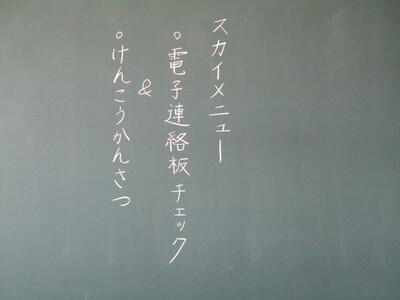 スカイメニュー
。電子連絡板チェック
&
。けんこうかんさつ